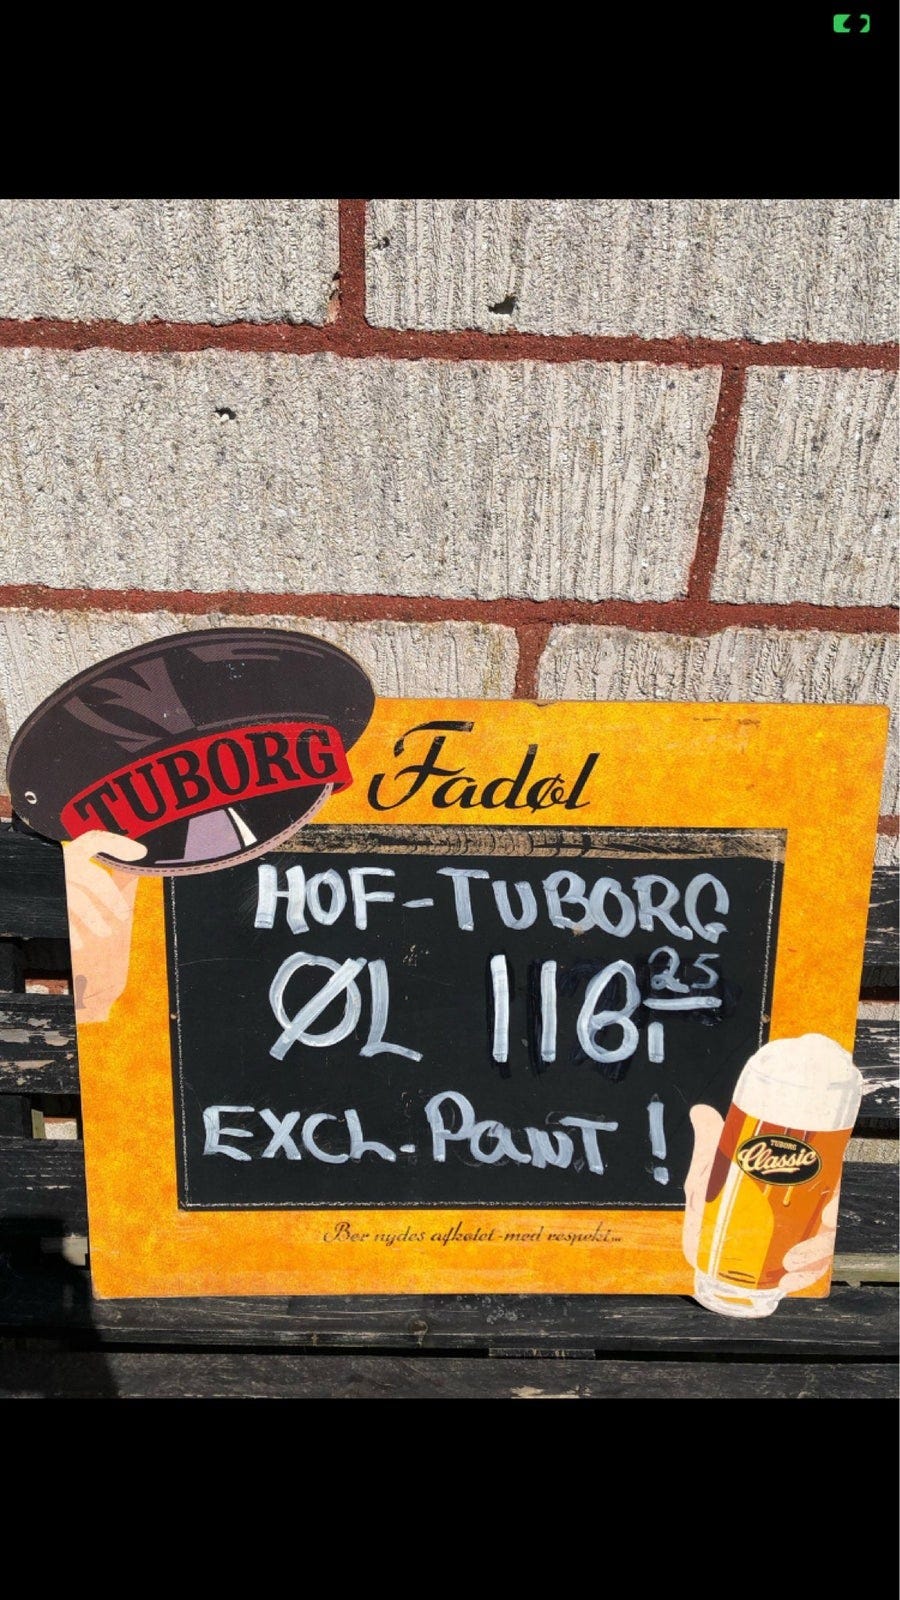 TUBORG
Fadøl
HOF-TUBORG
ØL 116,25
EXCL. PANT !
TUBORG
Classic
Bør nydes afkølet - med respekt...